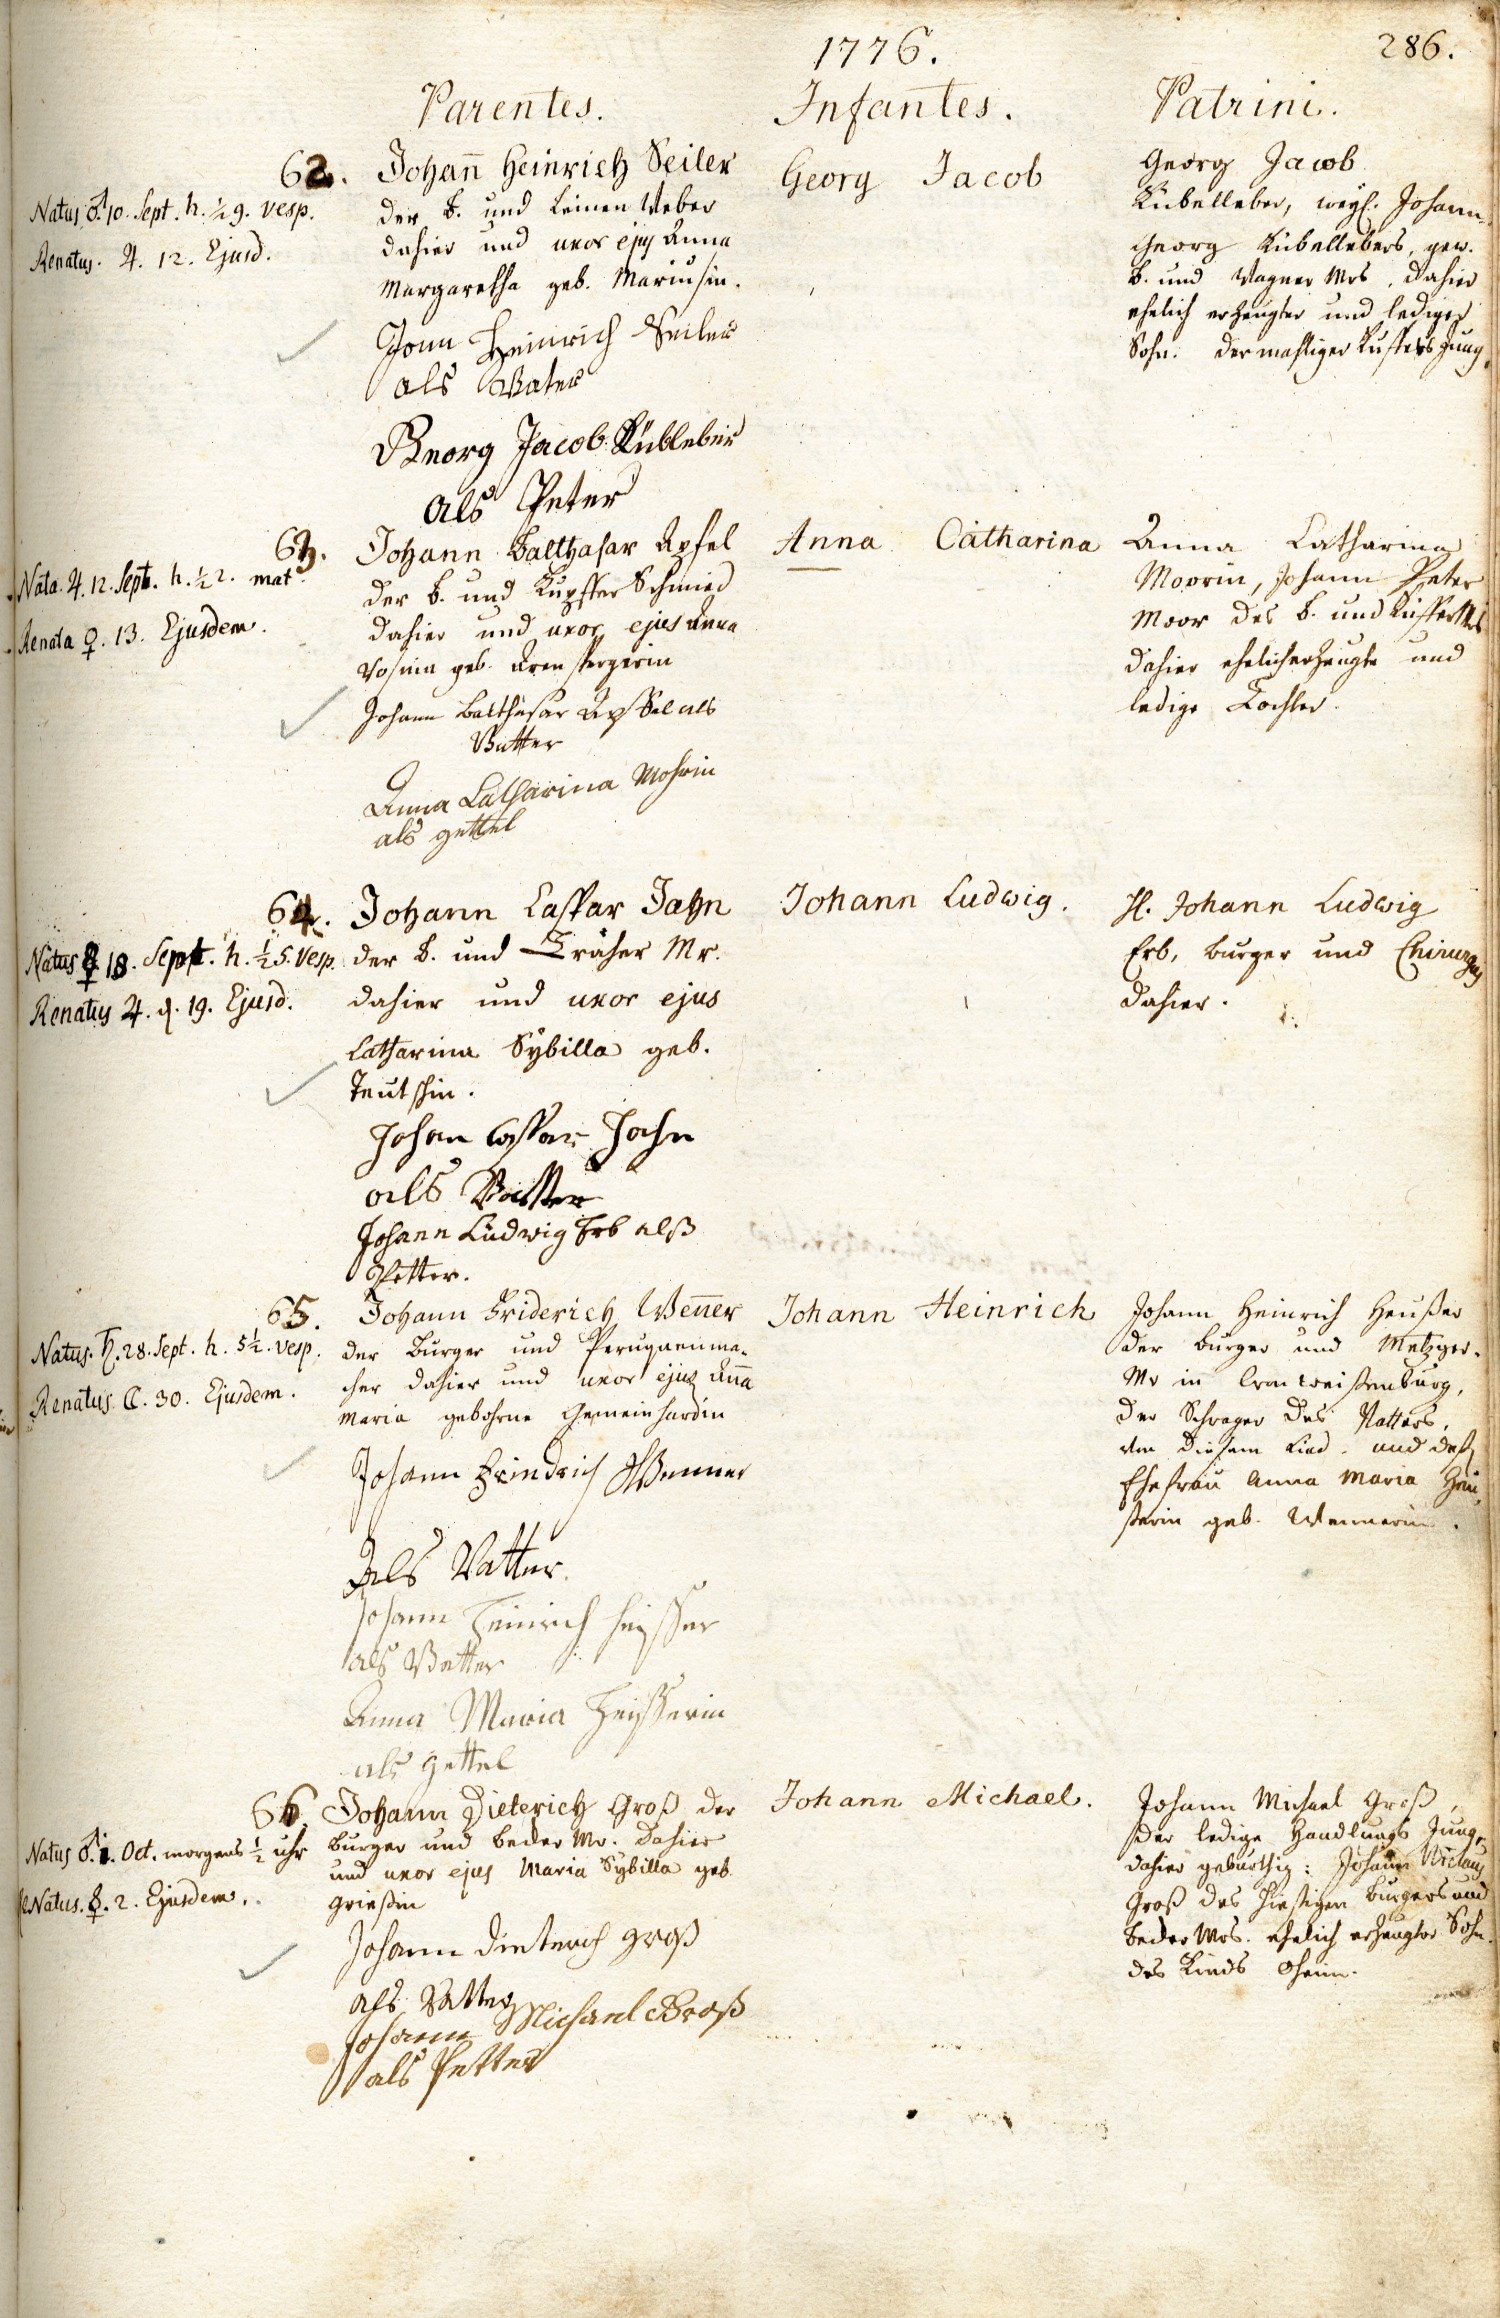 1776.
286.
Parentes.
Infantes.
Patrini.
62.
Natus ♂. 10. Sept. h. ½ 9. vesp.
Renatus. ♃. 12. Ejusd.
Johann Heinrich Seiler
der b. und Leinen Weber
dahier und uxor ejus Anna
Margaretha geb. Mariusin.
Georg Jacob
Georg Jacob
Kübelleber, weyl. Johann
Georg Kübellebers, gew.
b. und Wagner Mrs. dahier
ehelich erzeugter und lediger
Sohn. dermahliger Küffers Jung.
Heinrich Seiler
als Vater
Georg Jacob Kübleber
als Peter
63.
Nata ♃. 12. Sept. h. ½ 2. mat.
Renata ♀. 13. Ejusdem.
Johann Balthasar Apfel
der b. und Kupffer Schmied
dahier und uxor ejus Anna
Rosina geb.
Anna Catharina
Anna Catharina
Moorin, Johann Peter
Moor des b. und Küffer Mrs
dahier ehelich erzeugte und
ledige Tochter.
Johann Balthasar Apffel als
Vatter
Anna Catharina Mohrin
als gettel
64.
Natus ☿ 18. Sept. h. ½ 5. vesp.
Renatus ♃. d. 19. Ejusd.
Johann Caspar Jahn
der b. und Träher Mr.
dahier und uxor ejus
Catharina Sybilla geb.
Teutschin.
Johann Ludwig.
H. Johann Ludwig
Erb, burger und Chirurgus
dahier.
Johan Caspar Jahn
als Vatter
Johann Ludwig Erb alß
Petter.
65.
Natus. ♄. 28. Sept. h. 5½. vesp.
Renatus ☾. 30. Ejusdem.
Johann Friderich Wen̄er
der Burger und Peruquenma-
cher dahier und uxor ejus An̄a
Maria gebohrne Gemeinhardin
Johann Heinrich
Johann Heinrich Heußer
der burger und Metzger-
Mr in Cron Weißenburg,
der Schwager des Vatters,
von diesem Kind. und deß
Ehefrau Anna Maria Heu-
ßerin geb. Wennerin.
Johann Friedrich Wenner
Als Vatter.
Johann Heinrich Heysser
als Petter
Anna Maria Heysserin
als gettel
66.
Natus ♂. 1. Oct. morgens ½ uhr
ReNatus. ☿. 2. Ejusdem.
Johann Dieterich Groß der
burger und beder Mr. dahier
und uxor ejus Maria Sybilla geb.
Grießin
Johann Michael.
Johann Michael Groß,
der ledige Handlungs Jung,
dahier gebürthig: Johann Niclaus
Groß des hiesigen burgers und
beder Mrs. ehelich erzeugter Sohn.
des Kinds Oheim.
Johann Dieterich groß
als Vatter
Johann Michael Groß
als Petter